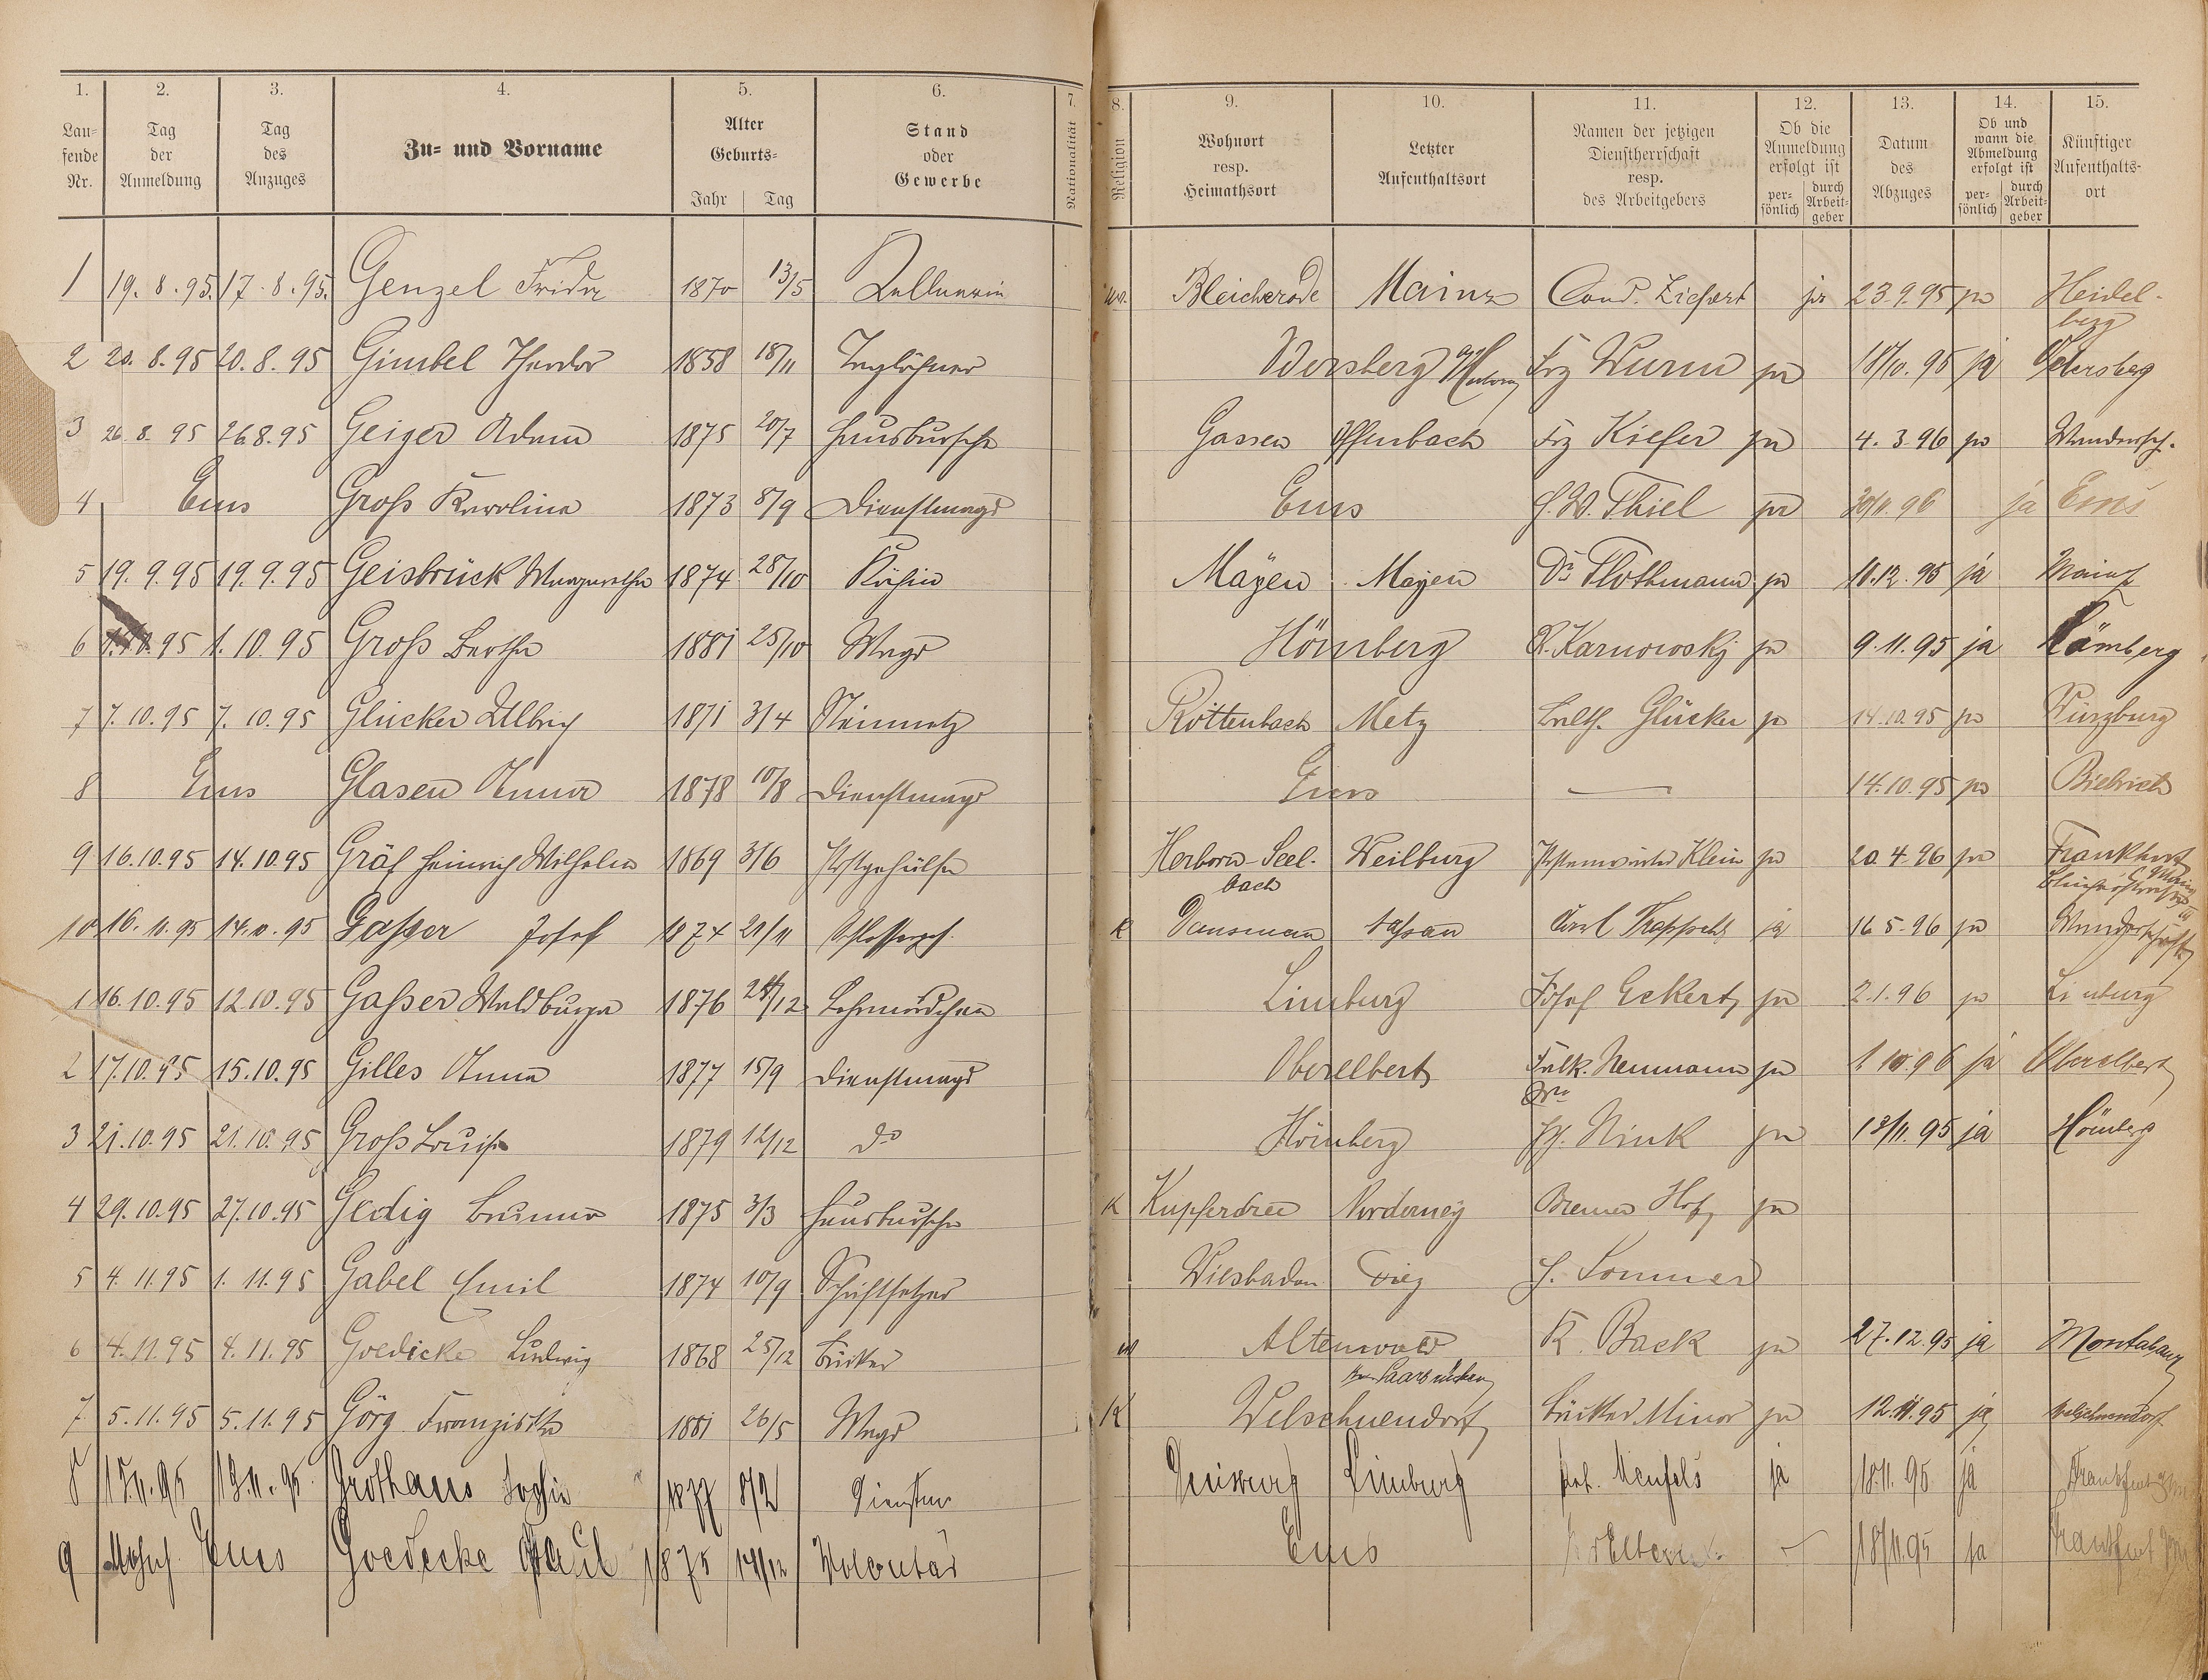 1. 2. 3. 4. 5. 6. 7. 8. 9. 10. 11. 12. 13. 14. 15.
Lau-
fende
Nr.
Tag
der
Anmeldung
Tag
des
Anzuges
Zu- und Vorname
Alter
Geburts-
Jahr Tag
Stand
oder
Gewerbe
Nationalität
Religion
Wohnort
resp.
Heimathsort
Letzter
Aufenthaltsort
Namen der jetzigen
Dienstherrschaft
resp.
des Arbeitgebers
Ob die
Anmeldung
erfolgt ist
per-
sönlich
durch
Arbeit-
geber
Datum
des
Abzuges
Ob und
wann die
Abmeldung
erfolgt ist
per-
sönlich
durch
Arbeit-
geber
Künftiger
Aufenthalts-
ort
1 19. 8. 95. 17. 8. 95. Genzel Frieda 1870 13/5 Kellnerin Bleicherode Mainz Cond. ja 23.9.95 ja Heidel-
berg
2 20. 8. 95 20. 8. 95 Gimbel Theodor 1858 18/11 Taglöhner Frz Wurm ja 18/10. 95 ja
3 26. 8. 95 26.8.95 Geiger Adam 1875 20/7 Hausbursche Gassen Offenbach Frz Kiefer ja 4. 3. 96 ja Wandersch.
4 Ems Groß Karoline 1873 8/9 Dienstmagd Ems H. W. Thiel ja 30/11. 96 ja Ems
5 19. 9. 95 19. 9. 95 Geisbrück Margarethe 1874 28/10 Köchin Mayen Mayen Dr Flothmann ja 11.12. 95 ja Mainz
6 1.10.95 1. 10. 95 Groß Bertha 1881 25/10 Magd Hömberg R. Karnowsky ja 9. 11. 95 ja Hömberg
7 7. 10. 95 7. 10. 95 Glücker Ulbrich 1871 3/4 Steinmetz Röttenbach Metz Glücker ja 14.10.95 ja Würzburg
8 Ems Glasen Anna 1878 10/8 Dienstmagd Ems — 14.10.95 ja Biebrich
9 16.10.95 14.10.95 Gräf Heinrich Wilhelm 1869 3/6 Postgehülfe Herborn-Seel-
bach Weilburg Klein ja 20. 4. 96 ja Frankfurt
10 16. 10. 95 14. 10. 95 Gaßer Josef 1874 21/11 Schlosserges. K Dausenau Nassau Carl ja 16. 5. 96 ja Wanderschaft
1 16.10.95 12.10.95 Gaßer Waldburga 1876 /12 Lehrmädchen Limburg Josef Eckert ja 2. 1. 96 ja Limburg
2 17.10.95 15.10.95 Gilles Anna 1877 15/9 Dienstmagd Oberelbert Falk. Neumann ja 1. 10. 96 ja Oberelbert
3 21.10.95 21.10.95 Groß Louise 1879 12/12 do Hömberg Nink ja 13/11. 95 ja Hömberg
4 29.10.95 27.10.95 Gedig Bruno 1875 3/3 Hausbursche K Kupferdree Norderney Bremer Hof ja
5 4. 11. 95 1. 11. 95 Gabel Emil 1874 10/9 Schriftsetzer Wiesbaden Diez H. Sommer
6 4. 11. 95 4. 11. 95 Goedicke Ludwig 1868 25/12 Bäcker Altenwald
Saarbrücken K. Back ja 27. 12. 95 ja Montabaur
7 5. 11. 95 5. 11. 95 Görg Franziska 1881 26/5 Magd K Welschneudorf Bäcker Minor ja 12. 11. 95 ja Welschneudorf
8 15. 11. 95 13. 11. 95 Grothaus Sophie 1877 8/2 Duisburg Limburg Menfels ja 18.11. 95 ja Frankfurt
9 Ems Goedecke Paul 1875 14/12 Volontär Ems 18/11.95 ja Frankfurt